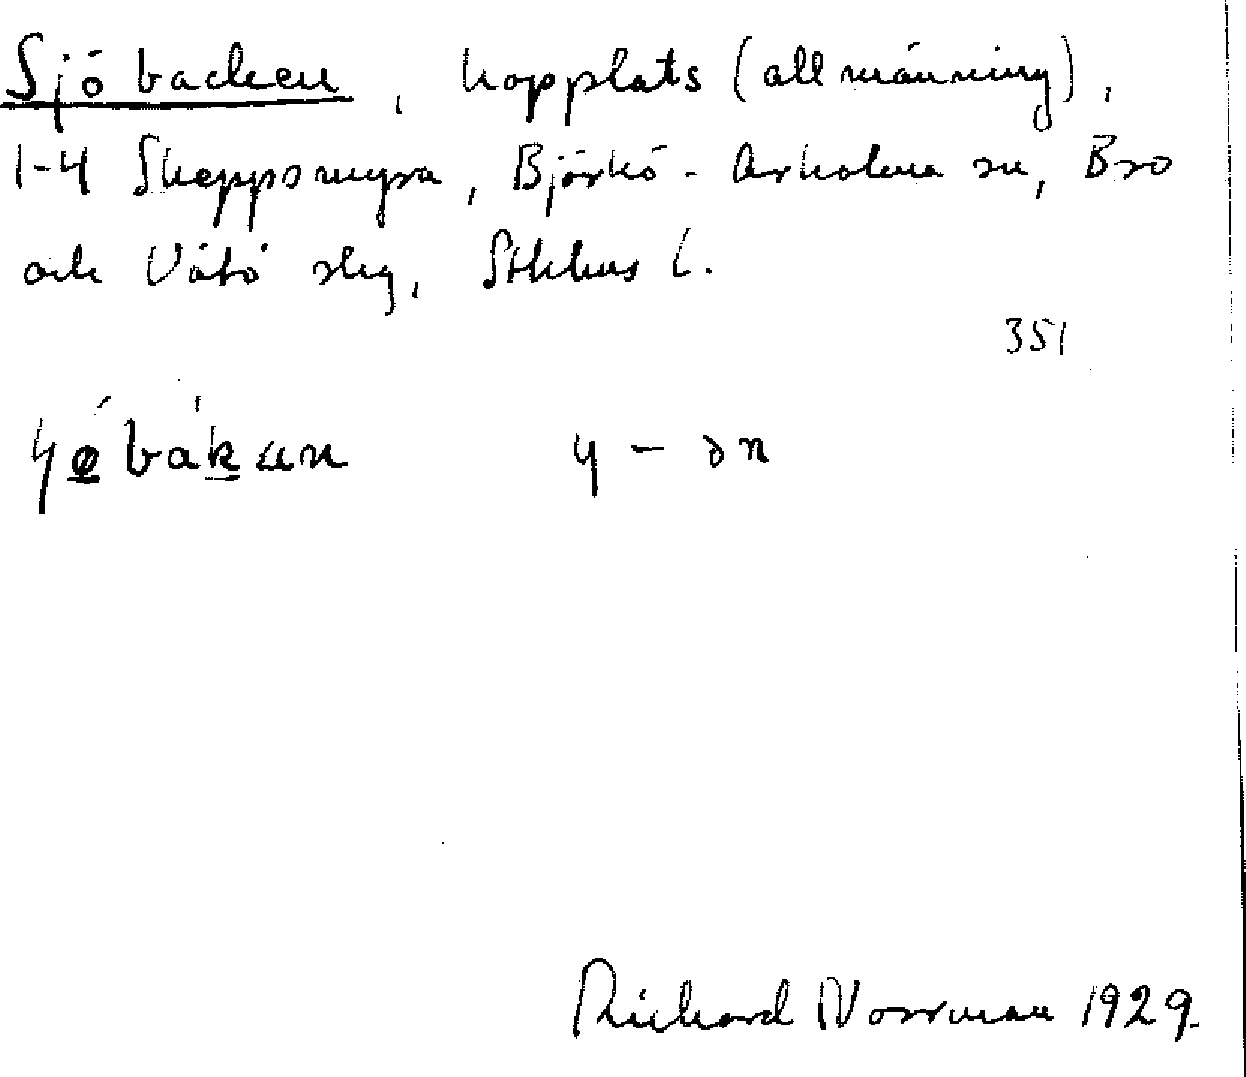 Sjöbacken, kopplats (allmänning),
1-4 Skeppsmyra, Björkö-Arholma sn, Bro
och Vätö skg, Sthlms l.
351
Richard Norrman 1929.